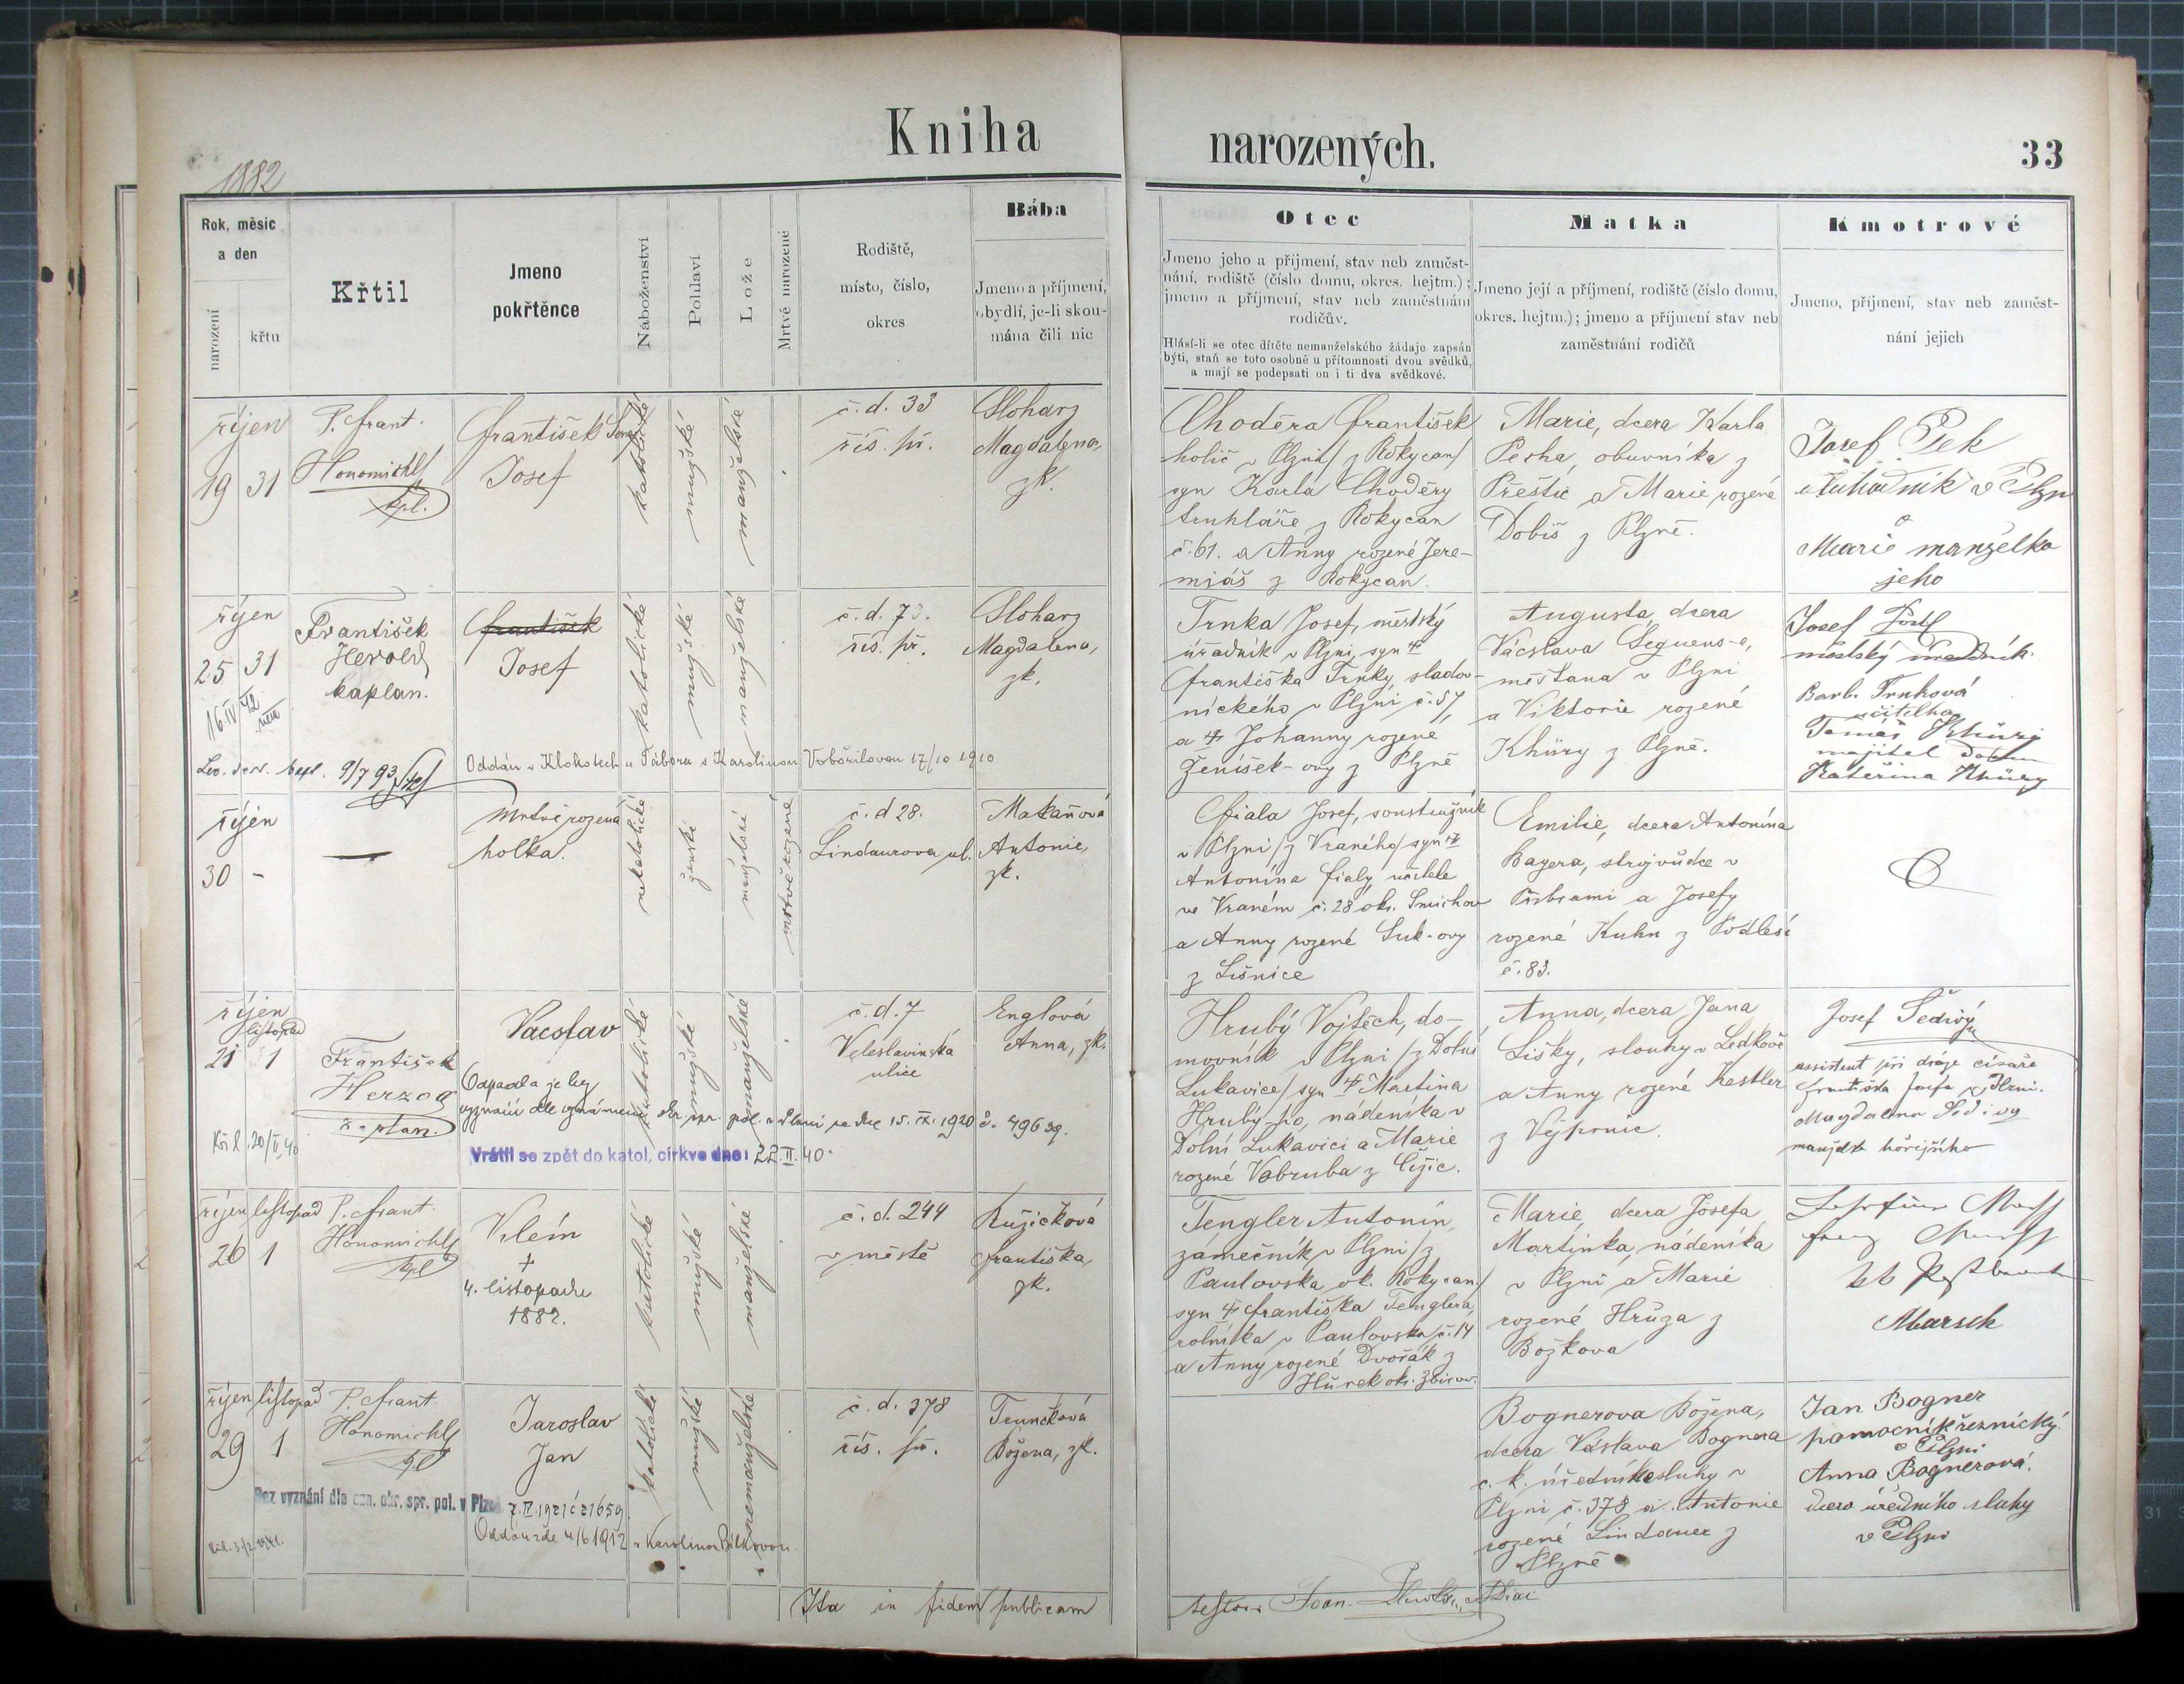 Kniha narozených.
33
1882
Rok, měsíc
a den
narození
křtu
Křtil
Jmeno
pokřtěnce
Náboženství
Pohlaví
Lože
Mrtvě narozené
Rodiště,
místo, číslo,
okres
Bába
Jmeno a příjmení,
obydlí, je-li skou-
mána čili nic
Otec
Jmeno jeho a příjmení, stav neb zaměst-
nání, rodiště (číslo domu, okres. hejtm.);
jmeno a příjmení, stav neb zaměstnání
rodičův.
Hlásí-li se otec dítěte nemanželského žádaje zapsán
býti, staň se toto osobně u přítomnosti dvou svědků,
a mají se podepsati on i ti dva svědkové.
Matka
Jmeno její a příjmení, rodiště (číslo domu,
okres. hejtm.); jmeno a příjmení stav neb
zaměstnání rodičů
Kmotrové
Jmeno, příjmení, stav neb zaměst-
nání jejich
říjen
19 31
P. Frant.
Honomichl
kpl.
František
Josef
katolické
mužské
manželské
č. d. 33
řís. př.
Sloharz
Magdalena,
zk.
Choděra František
holič v Plzni / z Rokycan /
syn Karla Choděry
truhláře z Rokycan
č. 61. a Anny rozené Jere-
miáš z Rokycan.
Marie, dcera Karla
Pecha, obuvníka z
Přeštic a Marie rozené
Dobiš z Plzně.
Josef Pek
v Plzni
a
Marie manželka
jeho
říjen
25 31
František
Herold
kaplan.
František
Josef
katolické
mužské
manželské
č. d. 73.
řís. př.
Sloharz
Magdalena,
zk.
16.IV.42
9/7 93
Oddán v Klokotech u Tábora s Karolinou Vobořilovou 17/10 1910
Trnka Josef, městský
úřadník v Plzni, syn †
Františka Trnky, sladov-
nického v Plzni č. 57,
a † Johanny rozené
Ženíšek-ovy z Plzně
Augusta, dcera
Václava Seguens-e,
měšťana v Plzni
a Viktorie rozené
Khüry z Plzně.
Josef
městský úředník.
Barb. Trnková
učitelka
Tomáš Khüry
majitel domu
Kateřina Khüry
říjen
30 -
Mrtvě rozená
holka.
nekatolické
ženské
manželské
mrtvě rozené
č. d 28.
Lindaurova ul.
Makaňová
Antonie,
zk.
Fiala Josef, soustružník
v Plzni / z Vraného / syn †
Antonína Fialy, učitele
ve Vraném č. 28 okr. Smichov
a Anny rozené Suk-ovy
z Lišnice
Emilie, dcera Antonína
Bayera, strojvůdce v
Příbrami a Josefy
rozené Kuhn z Podlesí
č. 83.
říjen
listopad
21 1
František
Herzog
kaplan.
Vácslav
Odpadl a je bez
vyznání dle oznámení okr. spr. pol. v Plzni ze dne 15. IX. 1920 č. 49639.
Vrátil se zpět do katol. církve dne: 22. II. 40.
20/II 40
katolické
mužské
manželské
č. d. 7
Veleslavínská
ulice
Englová
Anna, zk.
Hrubý Vojtěch, do-
movník v Plzni / z Dolní
Lukavice / syn † Martina
Hrubý-ho, nádeníka v
Dolní Lukavici a Marie
rozené Vobruba z Čižic.
Anna, dcera Jana
Lišky, slouhy v Ledkově
a Anny rozené Kestler
z Vejprnic.
Josef Šedivý
assistent při dráze císaře
Františka Josefa v Plzni.
Magdalena Šedivý
manželka hořejšího
říjen listopad
26 1
P. Frant.
Honomichl
kpl
Vilém
†
4. listopadu
1882.
katolické
mužské
manželské
č. d. 244
v městě
Ružičková
Františka,
zk.
Tengler Antonín,
zámečník v Plzni / z
Paulovska, ok. Rokycan /
syn † Františka Tenglera,
rolníka v Paulovsku č. 14
a Anny rozené Dvořák z
Hůrek okr. Zbirov.
Marie, dcera Josefa
Martínka, nádeníka
v Plzni a Marie
rozené Hrůza z
Božkova
Marsch
říjen listopad
29 1
P. Frant.
Honomichl
kpl
Jaroslav
Jan
katolické
mužské
nemanželské
č. d. 378
řís. př.
Trunčková
Božena, zk.
Bez vyznání dle ozn. okr. spr. pol. v Plzni 7. IV. 1921 č 21659
Oddán zde 4/6 1912 s Karolinou Bílkovou.
Bognerova Božena,
dcera Váslava Bognera
c. k. úředního sluhy v
Plzni č. 378 a Antonie
rozené Lindauer z
Plzně
Jan Bogner
pomocník řeznický
v Plzni
Anna Bognerová.
dcera úředního sluhy
v Plzni
Ita in fidem publicam
testor: Joan.